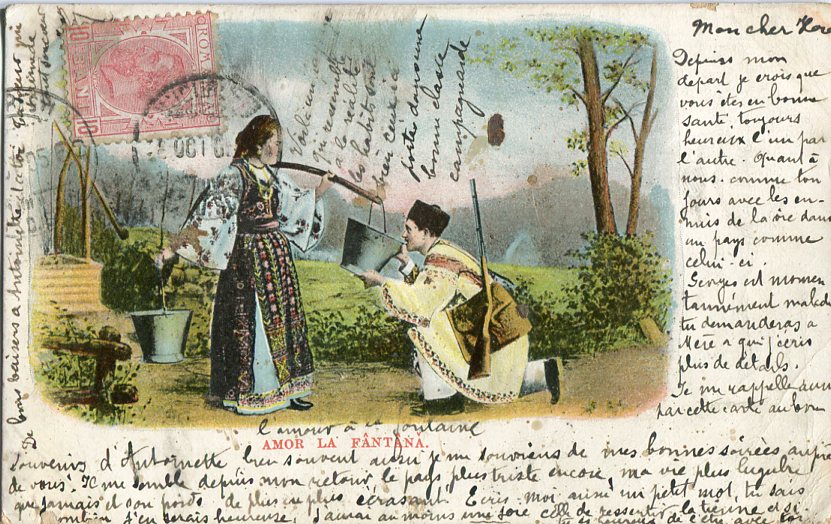 Mon cher
Depuis mon
départ je crois que
vous êtes en bonne
santé, toujours
heureux l'un par
l'autre. Quant à
nous, comme tou
jours avec les en-
nuis de la vie dans
un pays comme
celui-ci.
Georges est momen
tanément malade
tu demanderas à
Mère à qui j'écris
plus de détails.
Je me rappelle aussi
par cette carte au bon
souvenir d'Antoinette bien souvent aussi je me souviens de nos bonnes soirées auprès
de vous. Il me semble depuis mon retour, le pays plus triste encore, ma vie plus lugubre
que jamais et son poids de plus en plus écrasant. Ecris-moi aussi un petit mot, tu sais
combien j'en serais heureuse, j'aurai au moins une joie celle de ressentir la tienne et si
tu es heureux de
De bons baisers à Antoinette
qui ressemble
à la réalité
les habits sont
bien ceux ici
portés
bonne classe
campagnarde
l'amour à la fontaine
AMOR LA FÂNTÂNA.
ROMANIA
10 BANI 10